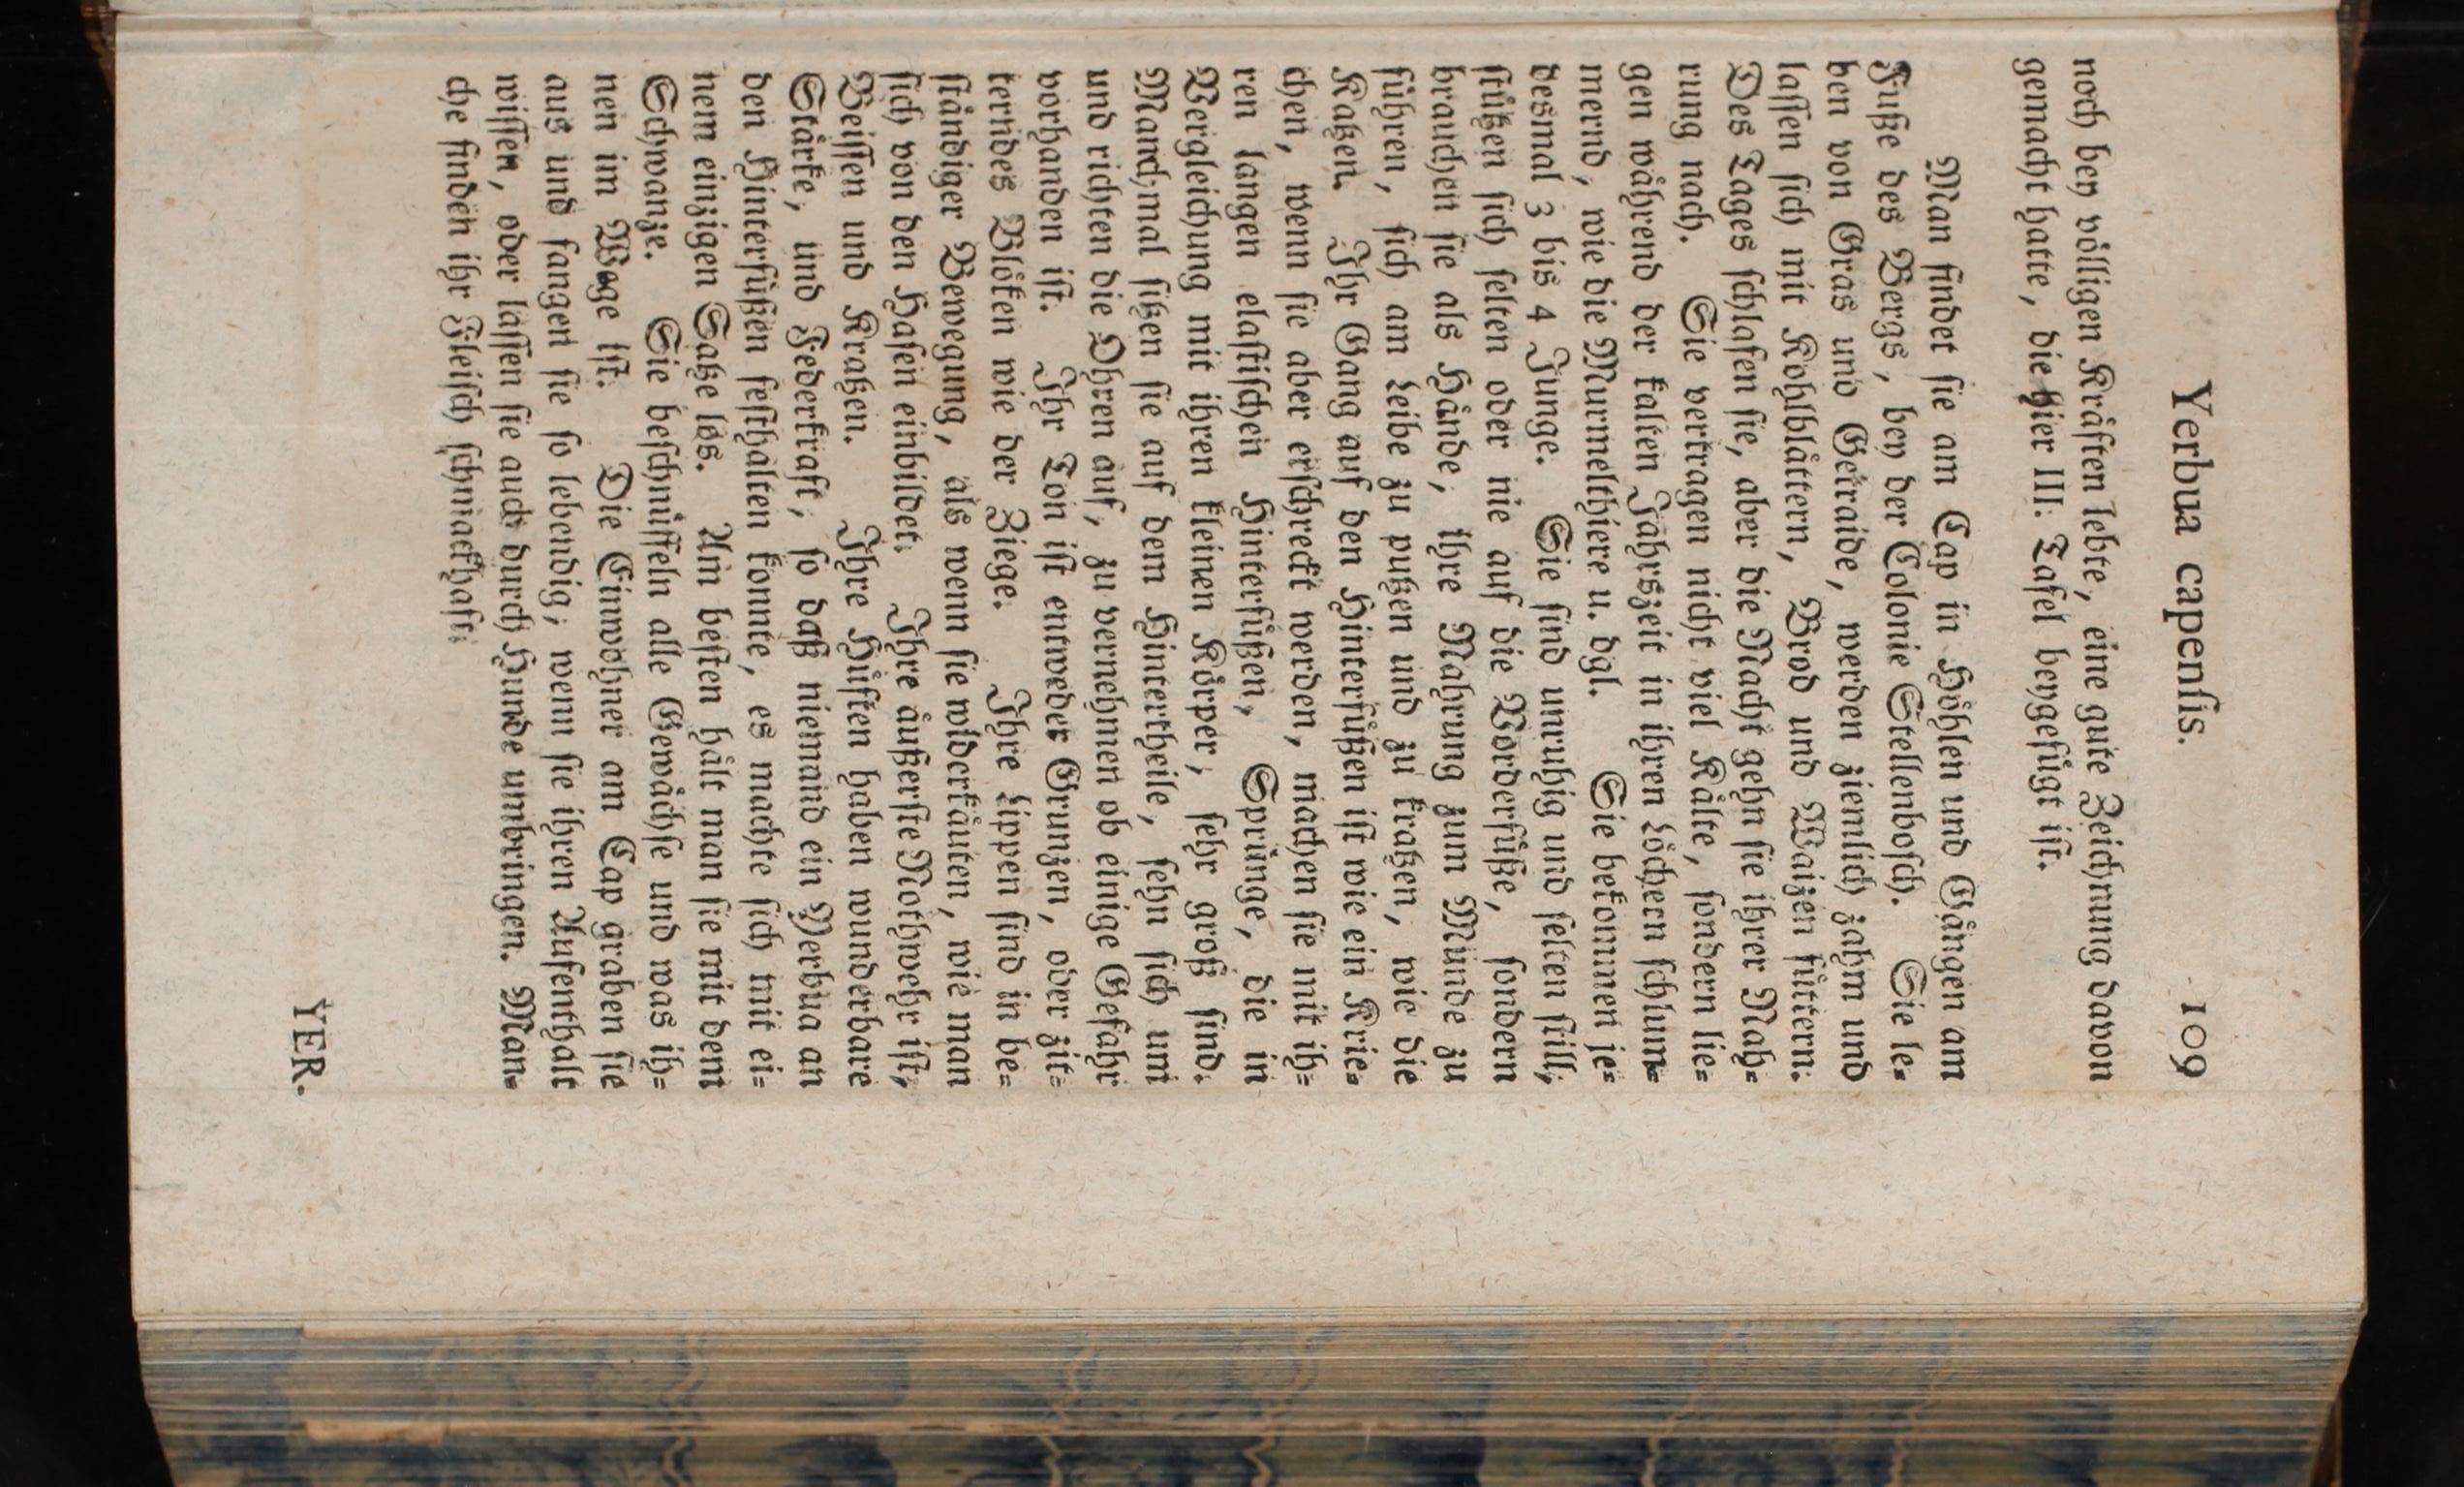 Yerbua capenſis. 109
noch bey völligen Kräften lebte, eine gute Zeichnung davon
gemacht hatte, die hier III. Tafel beygefügt iſt.
Man findet ſie am Cap in Höhlen und Gängen am
Fuße des Bergs, bey der Colonie Stellenboſch. Sie le=
ben von Gras und Getraide, werden ziemlich zahm und
laſſen ſich mit Kohlblättern, Brod und Waizen füttern.
Des Tages ſchlafen ſie, aber die Nacht gehn ſie ihrer Nah=
rung nach. Sie vertragen nicht viel Kälte, ſondern lie=
gen während der kalten Jahrszeit in ihren Löchern ſchlum=
mernd, wie die Murmelthiere u. dgl. Sie bekommen je=
desmal 3 bis 4 Junge. Sie ſind unruhig und ſelten ſtill,
ſtützen ſich ſelten oder nie auf die Vorderfüße, ſondern
brauchen ſie als Hände, ihre Nahrung zum Munde zu
führen, ſich am Leibe zu putzen und zu kratzen, wie die
Katzen. Ihr Gang auf den Hinterfüßen iſt wie ein Krie=
chen, wenn ſie aber erſchreckt werden, machen ſie mit ih=
ren langen elaſtiſchen Hinterfüßen, Sprünge, die in
Vergleichung mit ihren kleinen Körper, ſehr groß ſind.
Manchmal ſitzen ſie auf dem Hintertheile, ſehn ſich um
und richten die Ohren auf, zu vernehmen ob einige Gefahr
vorhanden iſt. Ihr Ton iſt entweder Grunzen, oder zit=
terndes Blöken wie der Ziege. Ihre Lippen ſind in be=
ſtändiger Bewegung, als wenn ſie widerkäuten, wie man
ſich von den Haſen einbildet. Ihre äußerſte Nothwehr iſt,
Beiſſen und Kratzen. Ihre Hüften haben wunderbare
Stärke, und Federkraft, ſo daß niemand ein Yerbua an
den Hinterfüßen feſthalten konnte, es machte ſich mit ei=
nem einzigen Satze los. Am beſten hält man ſie mit dem
Schwanze. Sie beſchnüffeln alle Gewächſe und was ih=
nen im Wege iſt. Die Einwohner am Cap graben ſie
aus und fangen ſie ſo lebendig, wenn ſie ihren Aufenthalt
wiſſen, oder laſſen ſie auch durch Hunde umbringen. Man=
che finden ihr Fleiſch ſchmackhaft.
YER.